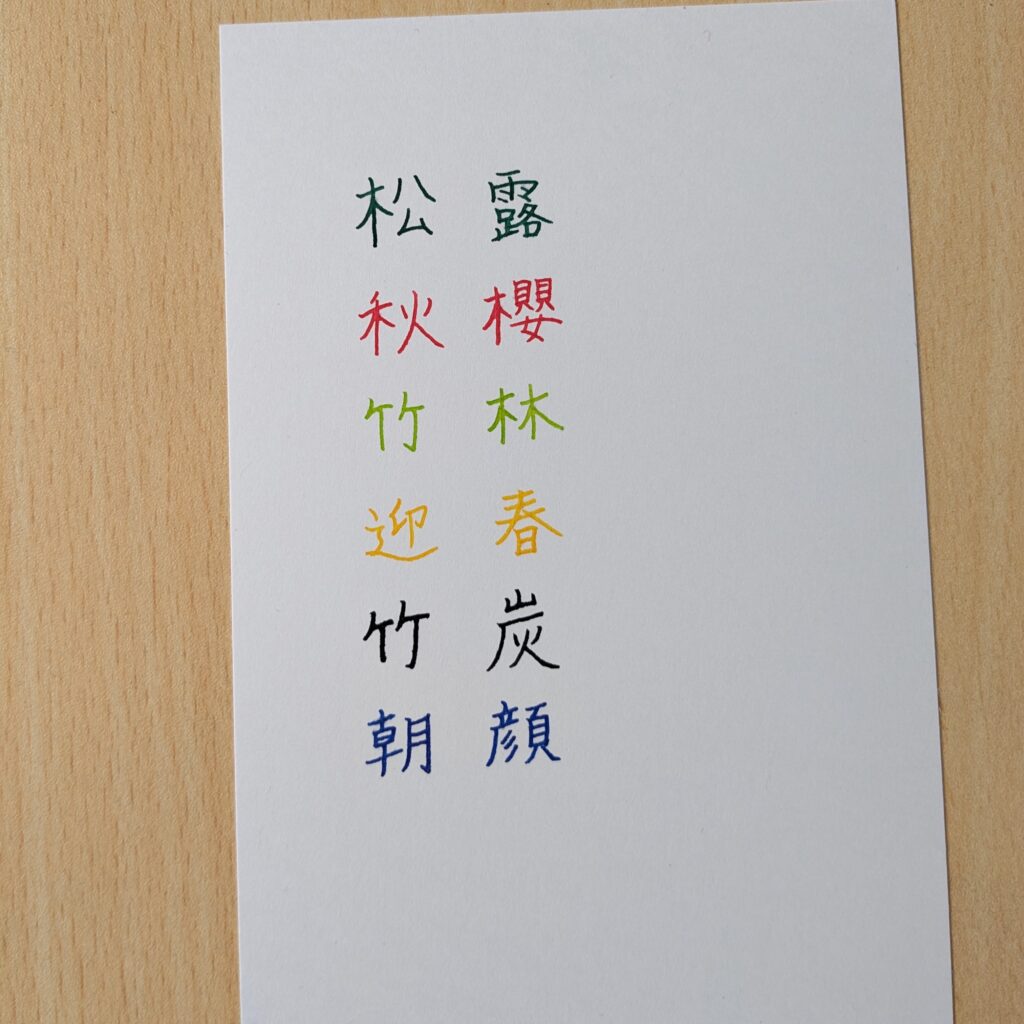 松露
秋櫻
竹林
迎春
竹炭
朝顔